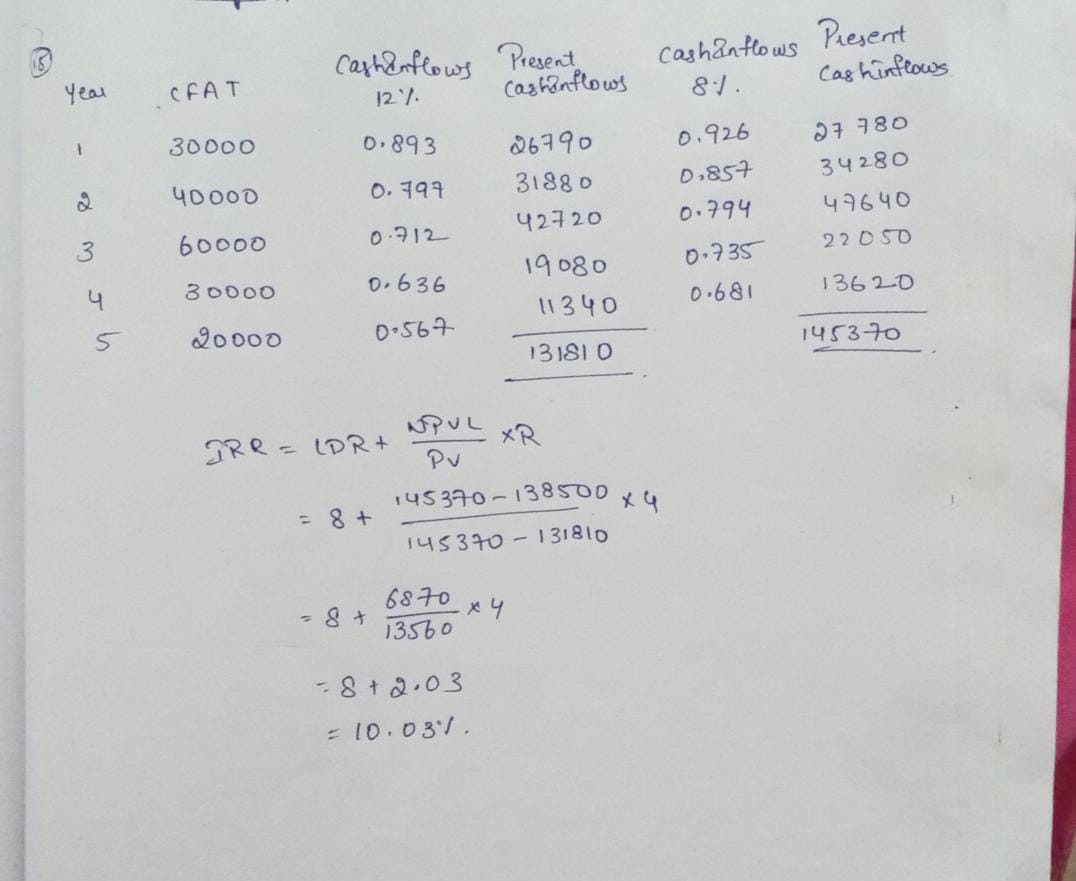 18
Year CFAT Cash inflows 12%. Present Cash inflows Cash inflows 8%. Present Cash inflows
1 30000 0.893 26790 0.926 27780
2 40000 0.797 31880 0.857 34280
3 60000 0.712 42720 0.794 47640
4 30000 0.636 19080 0.735 22050
5 20000 0.567 11340 0.681 13620
131810 145370
IRR = LDR + NPVL / PV × R
= 8 + 145370 - 138500 / 145370 - 131810 × 4
= 8 + 6870 / 13560 × 4
= 8 + 2.03
= 10.03%.